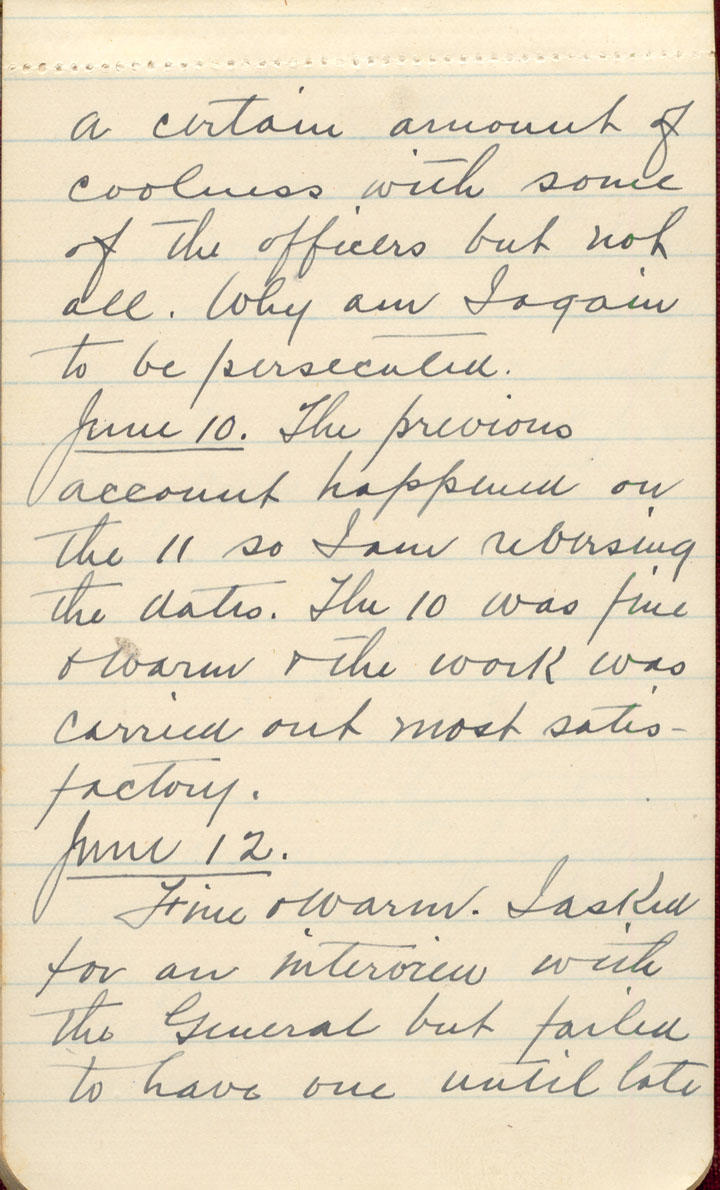 a certain amount of
coolness with some
of the officers but not
all. Why am I again
to be persecuted.
June 10. The previous
account happened on
the 11 so I am reversing
the dates. The 10 was fine
& warm & the work was
carried out most satis-
factory.
June 12.
Fine & warm. I asked
for an interview with
the General but failed
to have one until late